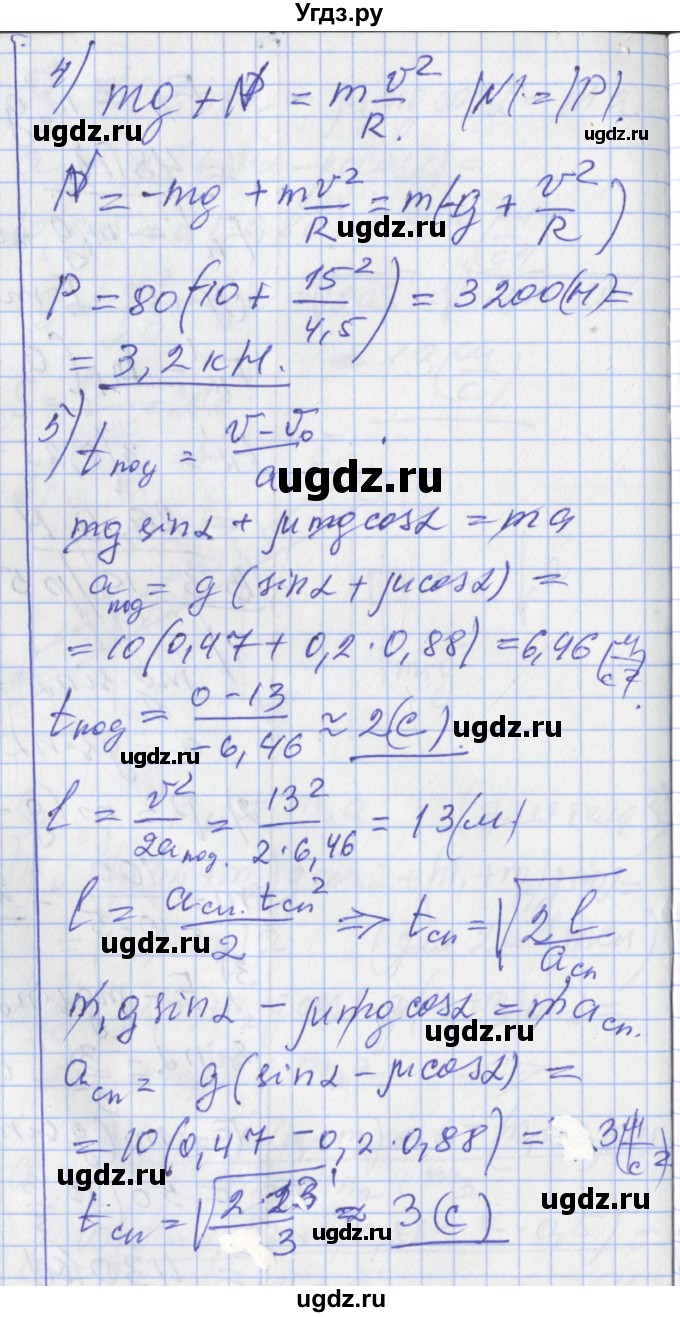 Угдз.ру
4) mg + N = m v²/R. |N| = |P|.
ugdz.ru ugdz.ru
N = -mg + m v²/R = m(-g + v²/R)
ugdz.ru
P = 80(-10 + 15²/4,5) = 3200(Н) =
= 3,2 кН.
5) tпод = (v - v₀)/a
ugdz.ru
mg sinα + μmg cosα = ma
aпод = g(sinα + μcosα) =
= 10(0,47 + 0,2·0,88) = 6,46 (м/с²).
tпод = (0 - 13)/(-6,46) ≈ 2(с).
ugdz.ru ugdz.ru
l = v²/2aпод. = 13²/(2·6,46) = 13(м)
l = aсп.·tсп²/2 ⇒ tсп = √(2l/aсп)
ugdz.ru
mg sinα - μmg cosα = m aсп.
ugdz.ru
aсп = g(sinα - μcosα) =
= 10(0,47 - 0,2·0,88) = 3(м/с²)
ugdz.ru ugdz.ru
tсп = √(2·13/3) ≈ 3(с)
ugdz.ru
ugdz.ru